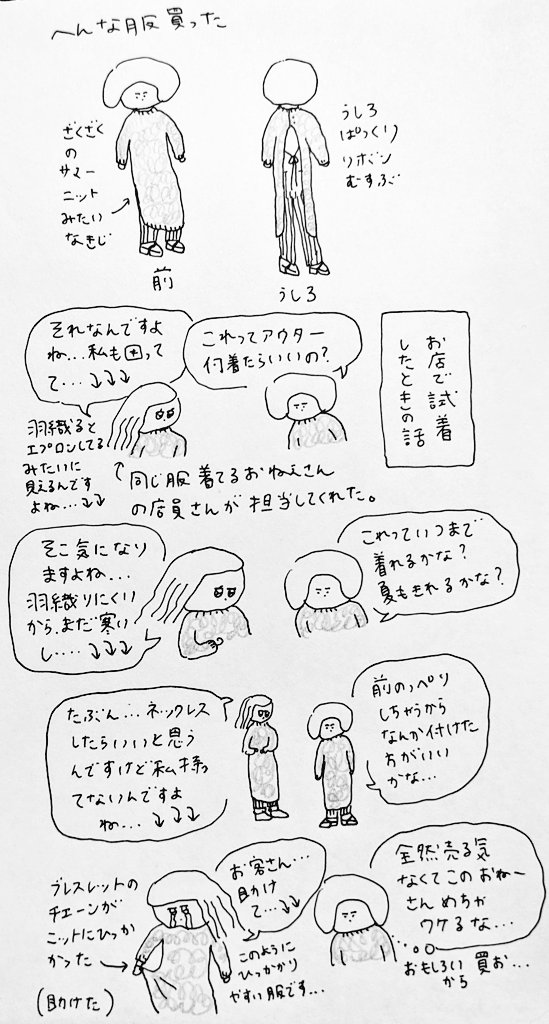 へんな服買った
ざくざく
の
サマー
ニット
みたい
なきじ
前
うしろ
ぱっくり
リボン
むすぶ
うしろ
お店で試着
したときの話
これってアウター
何着たらいいの?
それなんですよ
ね…私も困って
て…↓↓↓
羽織ると
エプロンしてる
みたいに
見えるんです
よね…↓↓
↑同じ服着てるおねえさん
の店員さんが担当してくれた。
これっていつまで
着れるかな?
夏もきれるかな?
そこ気になり
ますよね…
羽織りにくい
から、まだ寒い
し‥‥↓↓↓
前のっぺり
しちゃうから
なんか付けた
方がいい
かな…
たぶん…ネックレス
したらいいと思う
んですけど私持っ
てないんですよ
ね…↓↓↓
全然売る気
なくてこのおねー
さんめちゃ
ウケるな…
おもしろい
から
買お…
お客さん…
助け
て…↓↓
このように
ひっかかり
やすい服です…
ブレスレットの
チェーンが
ニットにひっ
かかった→
(助けた)